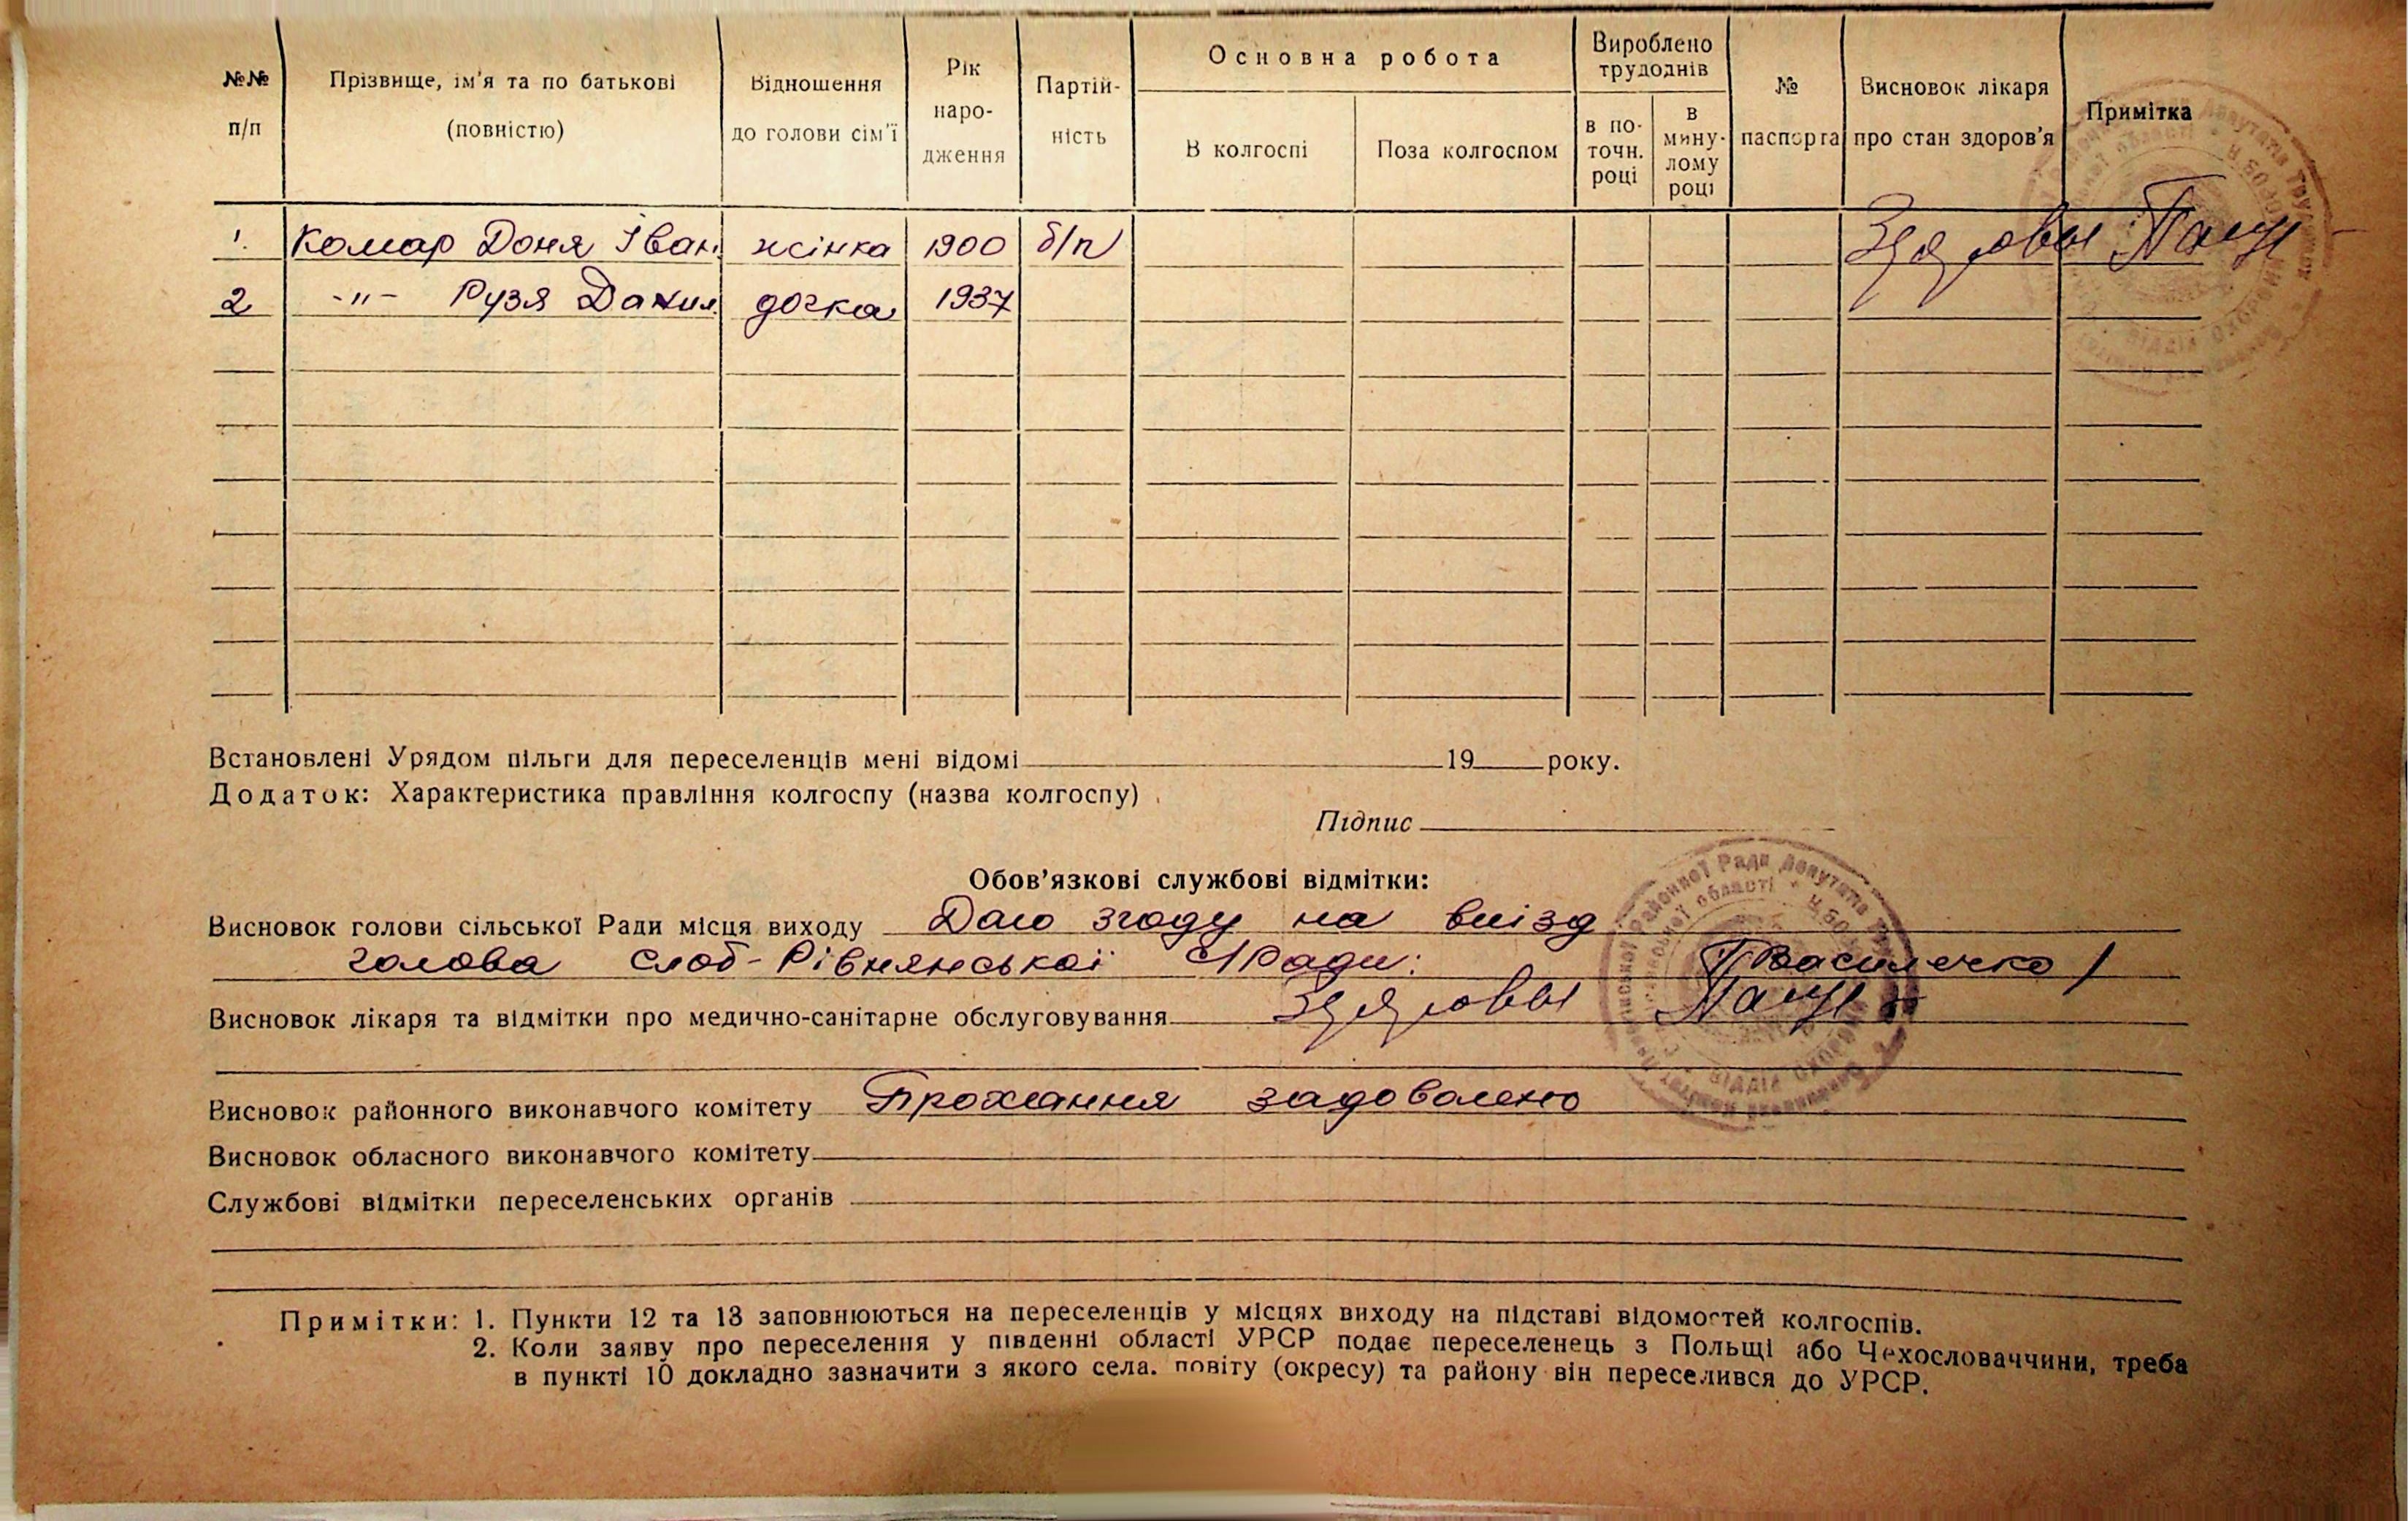 №№ п/п | Прізвище, ім'я та по батькові (повністю) | Відношення до голови сім'ї | Рік народження | Партійність | Основна робота | Вироблено трудоднів | № паспорта | Висновок лікаря про стан здоров'я | Примітка
В колгоспі | Поза колгоспом | в поточн. році | в минулому році
1. Комар Доня Іван. жінка 1900 б/п Здоровы
2 -"- Рузя Данил. дочка 1937
Встановлені Урядом пільги для переселенців мені відомі 19 року.
Додаток: Характеристика правління колгоспу (назва колгоспу)
Підпис
Обов'язкові службові відмітки:
Висновок голови сільської Ради місця виходу Даю згоду на виїзд
голова Слоб-Рівнянської с/Ради: Василечко /
Висновок лікаря та відмітки про медично-санітарне обслуговування Здоровы
Висновок районного виконавчого комітету Прохання задоволено
Висновок обласного виконавчого комітету
Службові відмітки переселенських органів
Примітки: 1. Пункти 12 та 13 заповнюються на переселенців у місцях виходу на підставі відомостей колгоспів.
2. Коли заяву про переселення у південні області УРСР подає переселенець з Польщі або Чехословаччини, треба
в пункті 10 докладно зазначити з якого села, повіту (окресу) та району він переселився до УРСР.